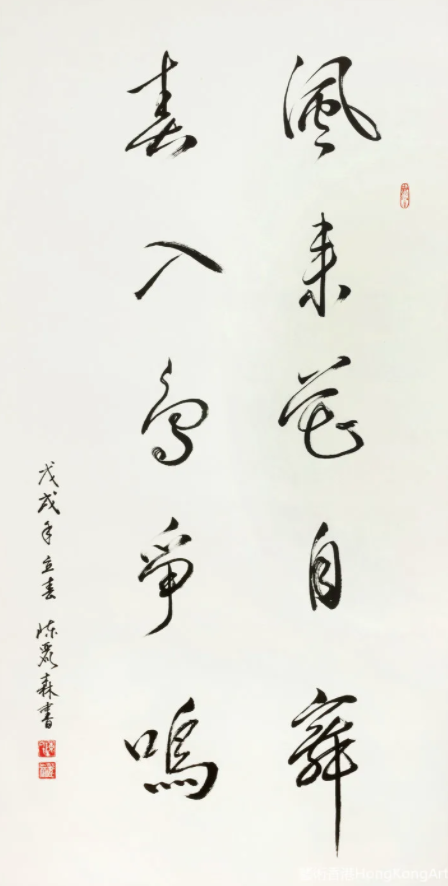 風来花自舞
春入鳥爭鳴
戊戌年立春 陳麗森書
HongKongArt